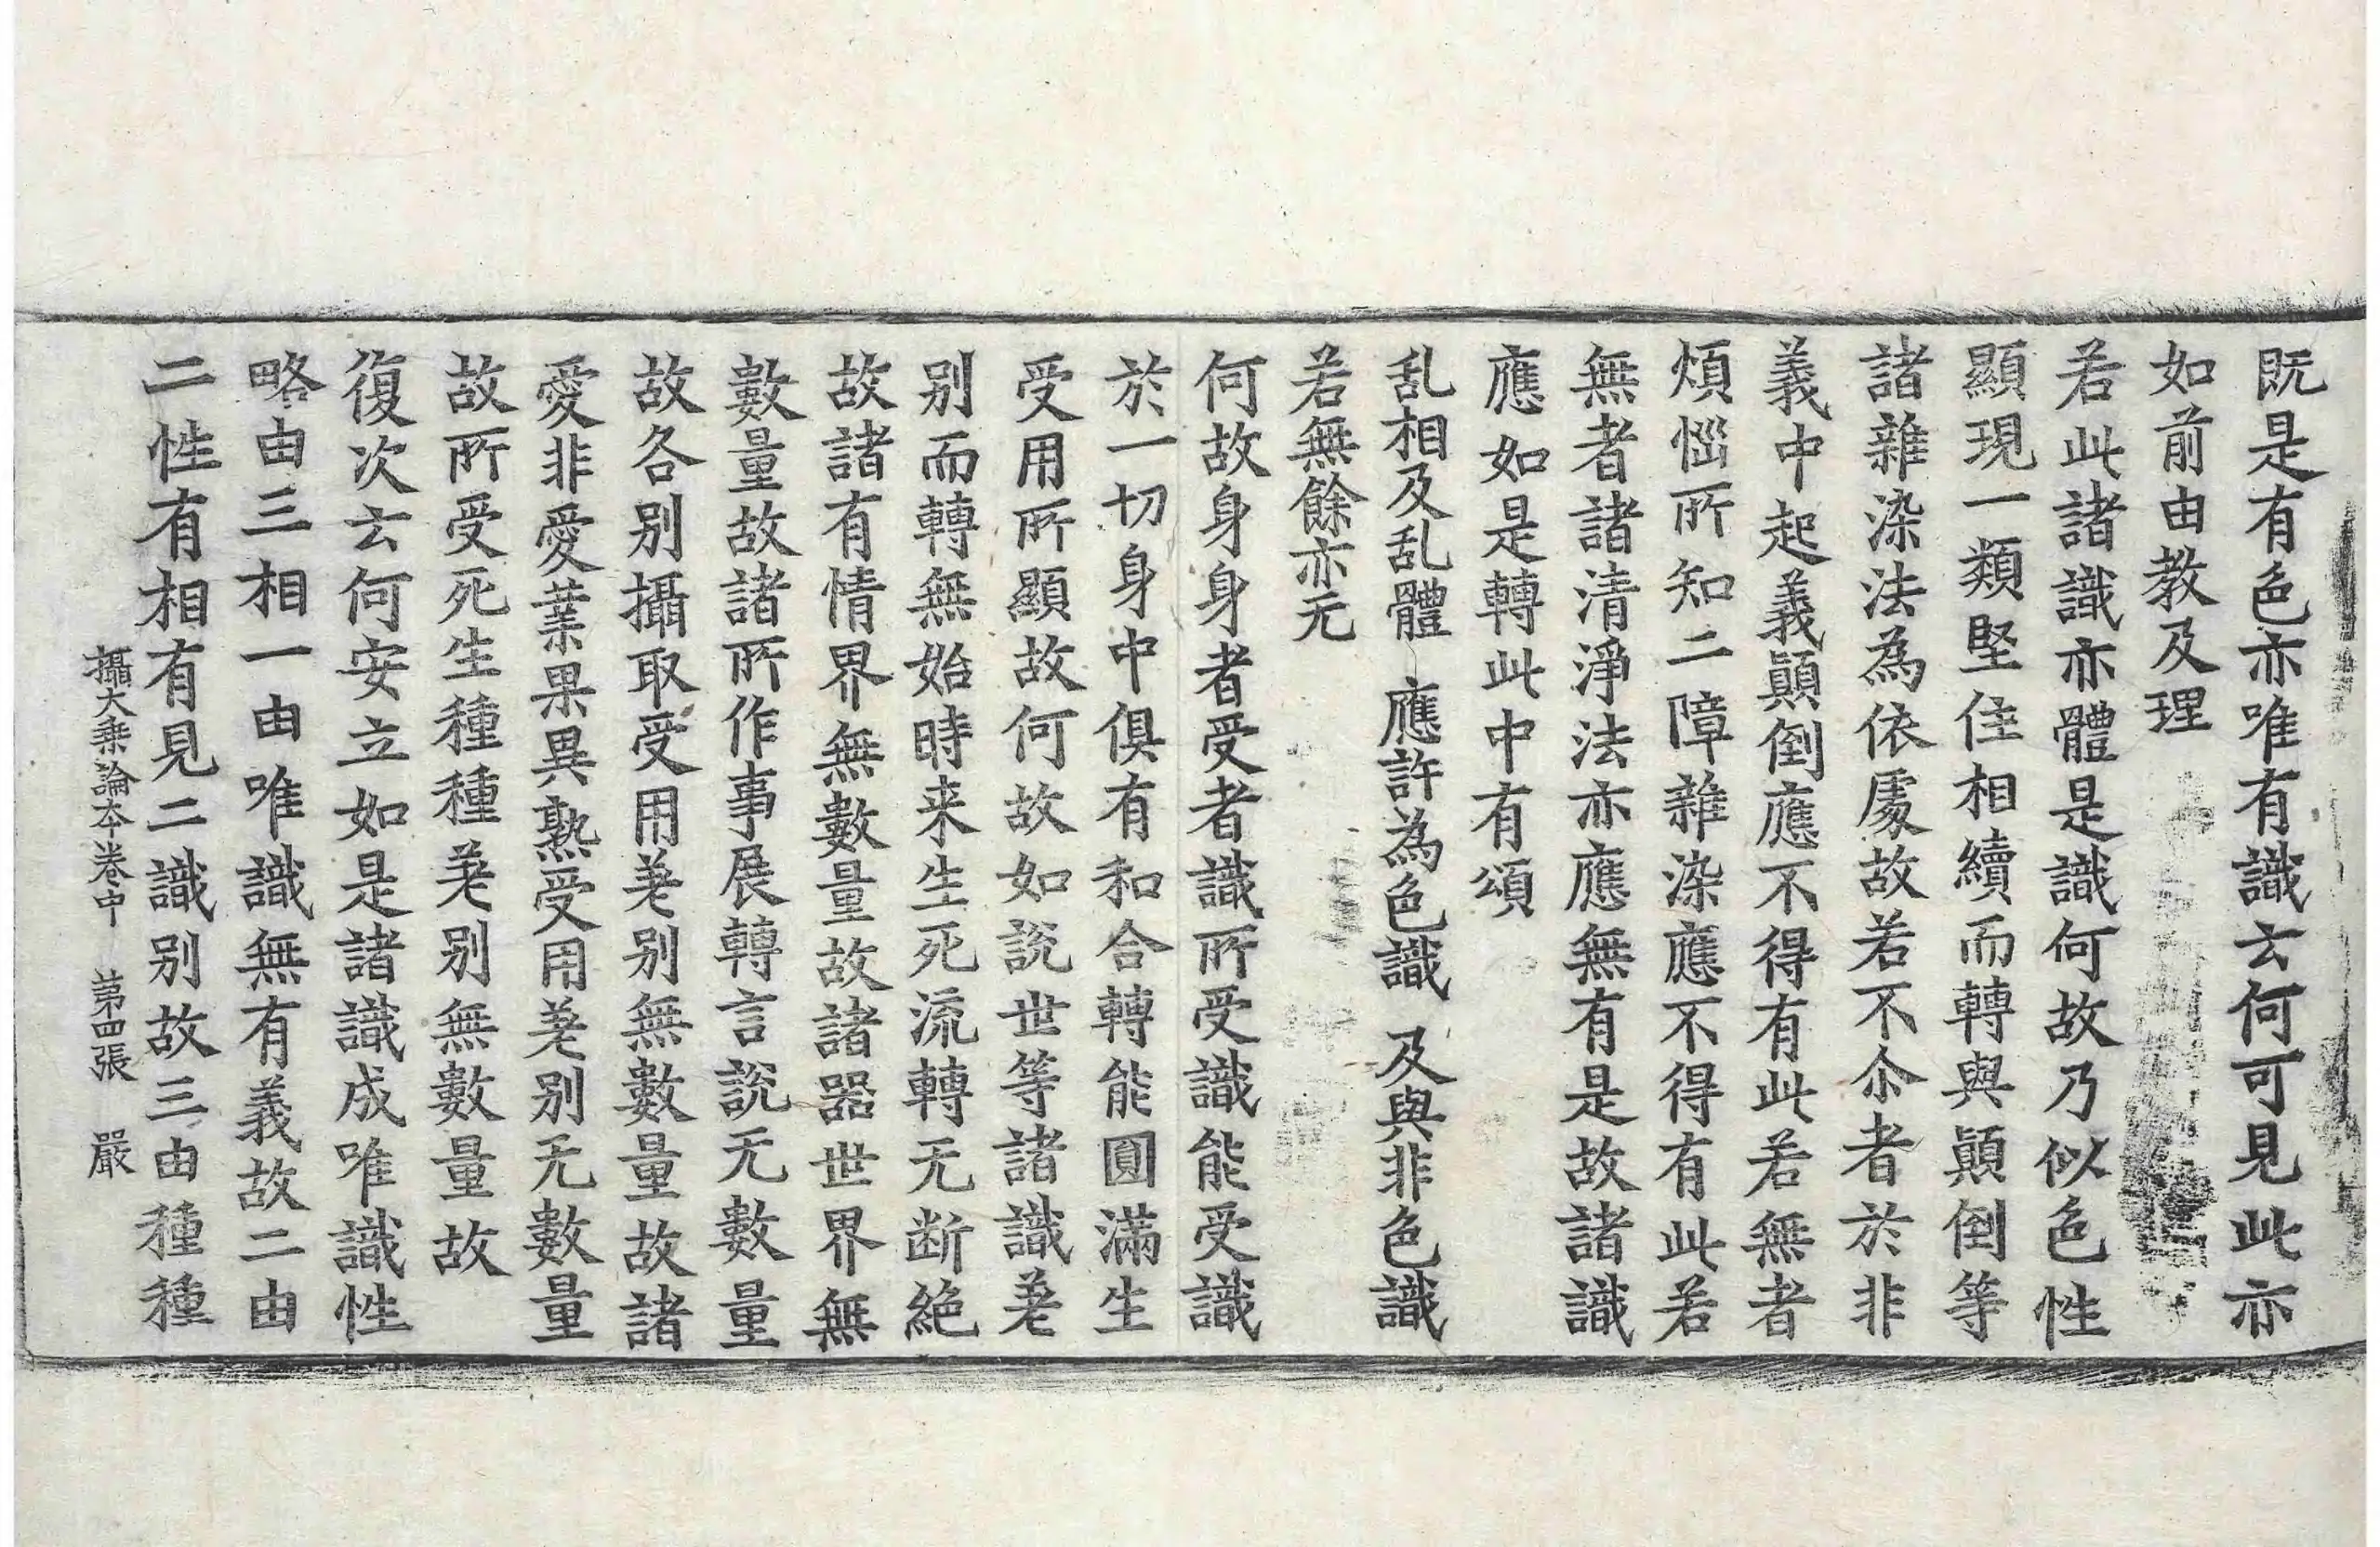 既是有色亦唯有識云何可見此亦
如前由教及理
若此諸識亦體是識何故乃似色性
顯現一類堅住相續而轉與顛倒等
諸雜染法為依處故若不尒者於非
義中起義顛倒應不得有此若無者
煩惱所知二障雜染應不得有此若
無者諸清淨法亦應無有是故諸識
應如是轉此中有頌
乱相及乱體　應許為色識　及與非色識
若無餘亦无
何故身身者受者識所受識能受識
於一切身中俱有和合轉能圓滿生
受用所顯故何故如說世等諸識差
别而轉無始時来生死流轉无断絶
故諸有情界無數量故諸器世界無
數量故諸所作事展轉言說无數量
故各别攝取受用差别無數量故諸
愛非愛業果異熟受用差别无數量
故所受死生種種差别無數量故
復次云何安立如是諸識成唯識性
略由三相一由唯識無有義故二由
二性有相有見二識别故三由種種
攝大乗論本卷中　第四張　嚴